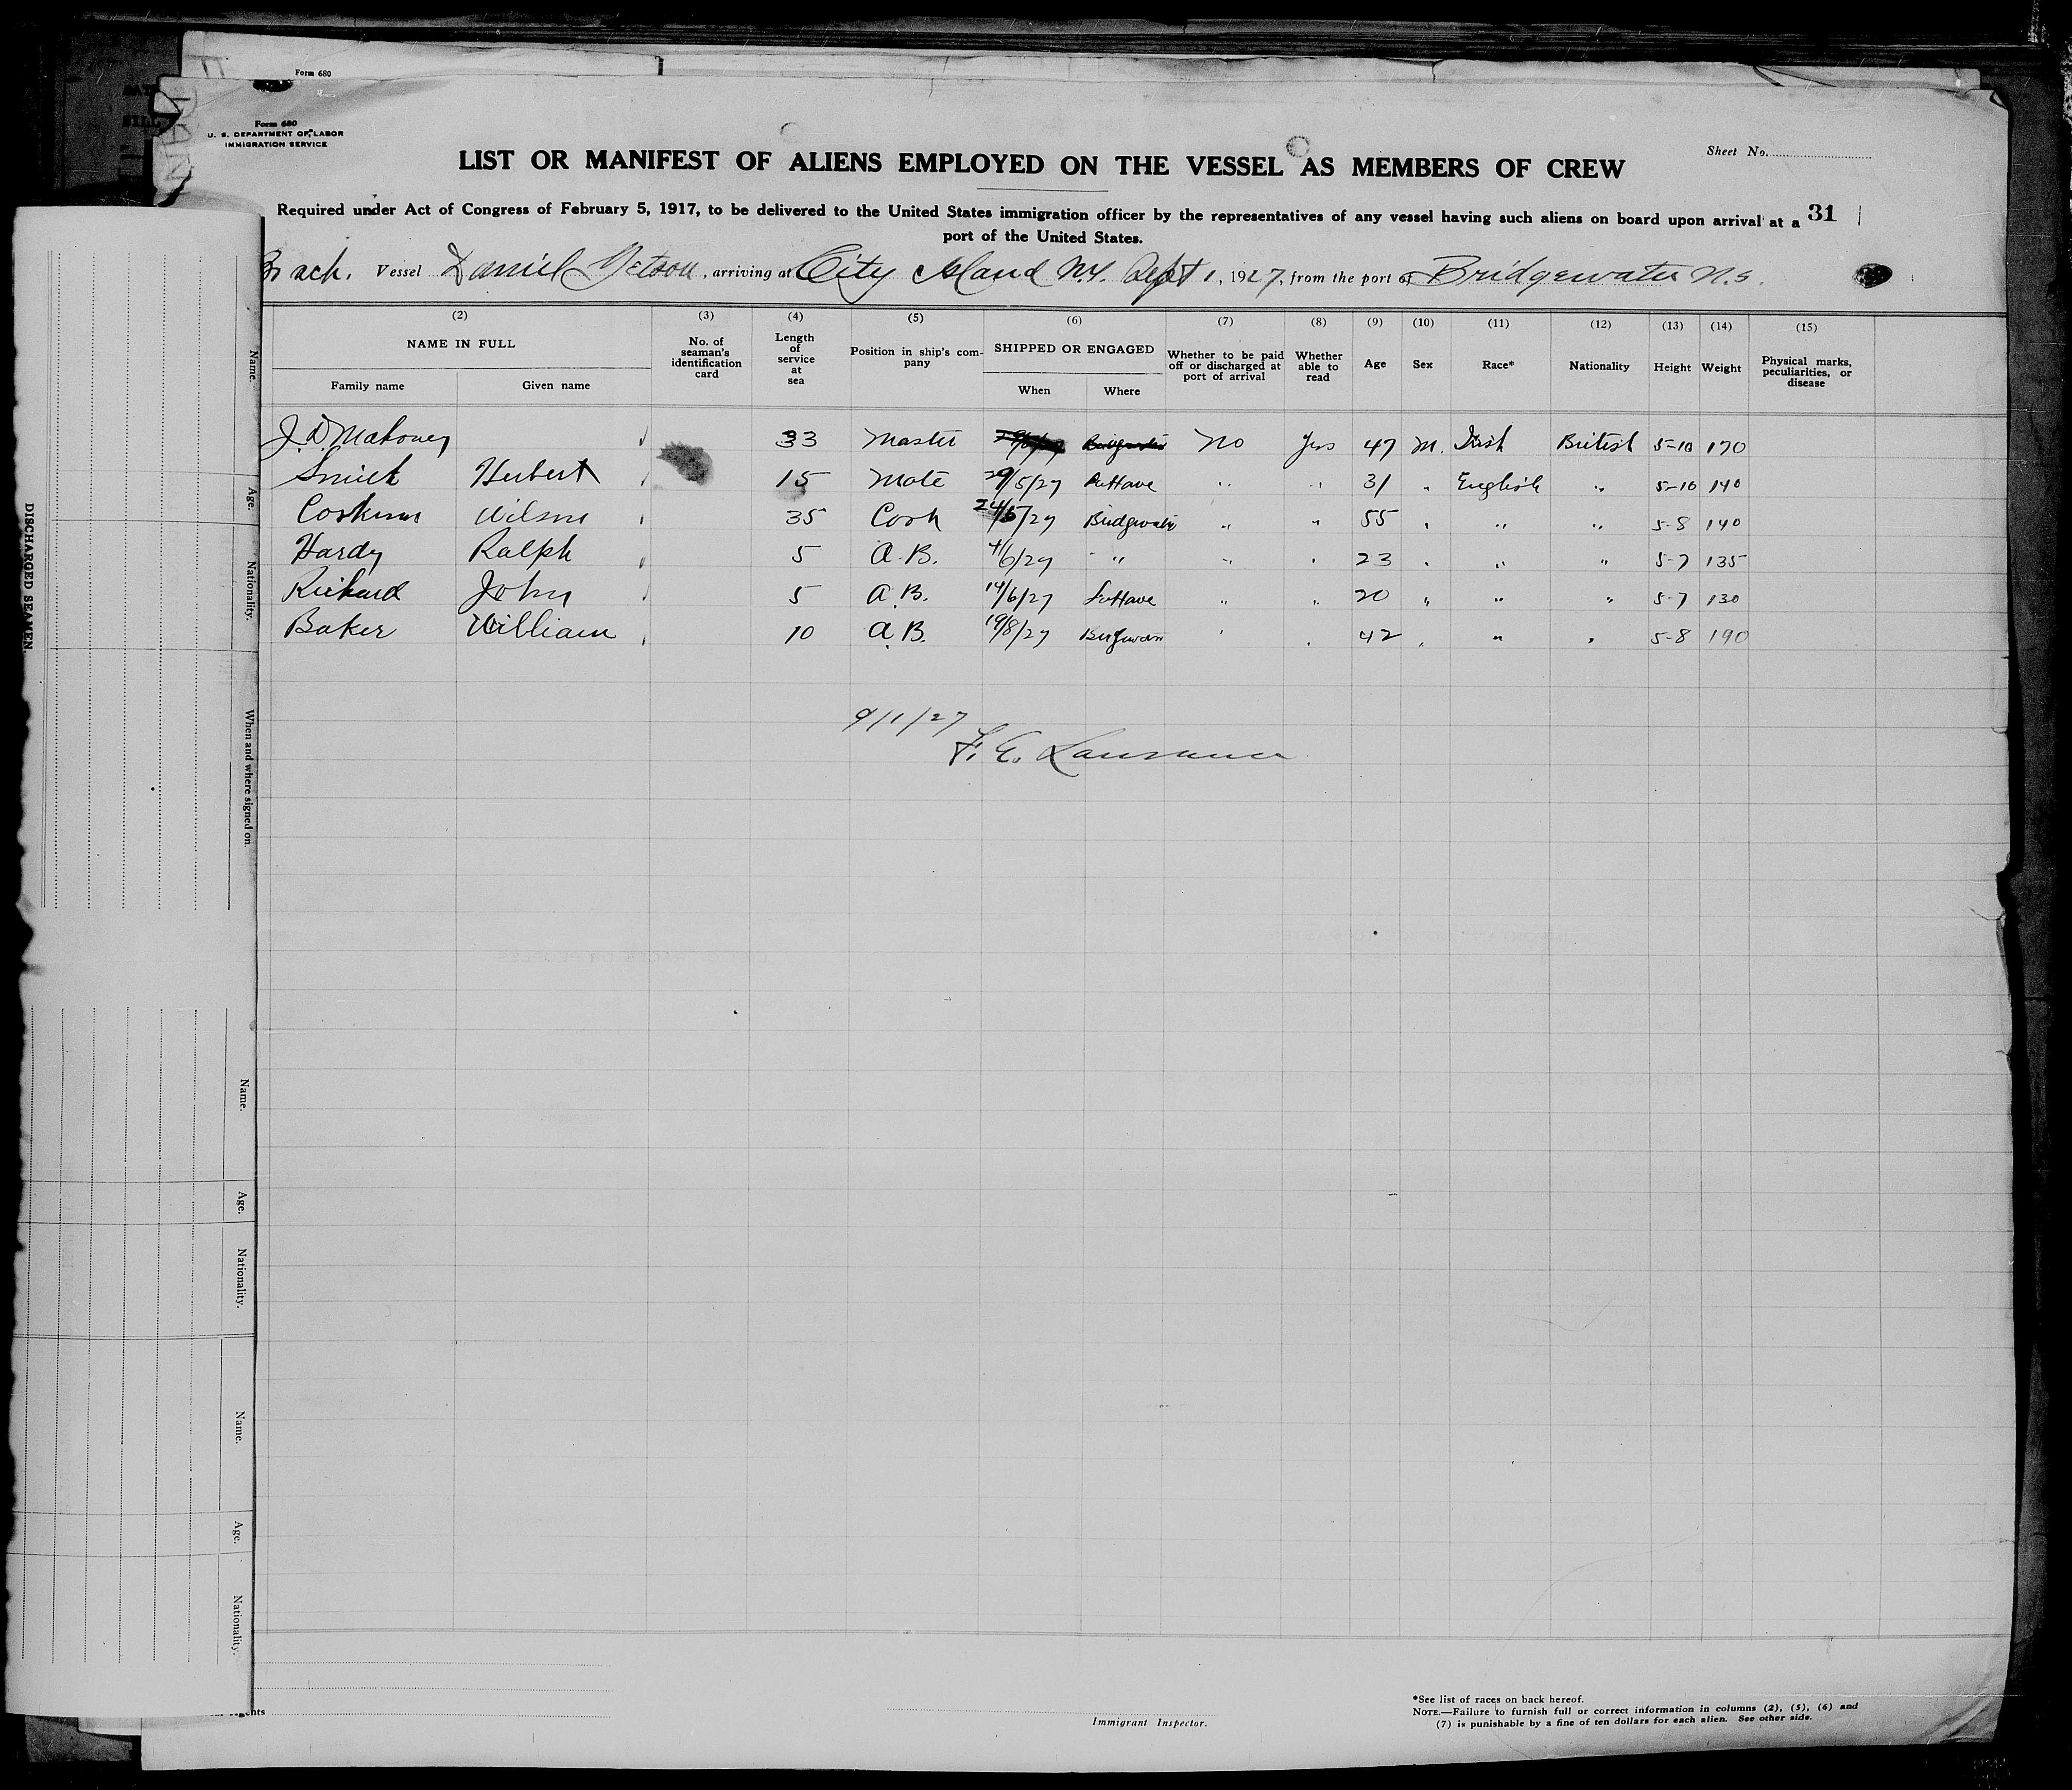 Form 680
Form 680
U. S. DEPARTMENT OF LABOR
IMMIGRATION SERVICE
Sheet No.
LIST OR MANIFEST OF ALIENS EMPLOYED ON THE VESSEL AS MEMBERS OF CREW
Required under Act of Congress of February 5, 1917, to be delivered to the United States immigration officer by the representatives of any vessel having such aliens on board upon arrival at a 31
port of the United States.
Vessel Daniel Getson, arriving at City Island N.Y. Sept 1, 1927, from the port of Bridgewater N.S.
(2) (3) (4) (5) (6) (7) (8) (9) (10) (11) (12) (13) (14) (15)
NAME IN FULL
Family name Given name
No. of seaman's identification card
Length of service at sea
Position in ship's company
SHIPPED OR ENGAGED
When Where
Whether to be paid off or discharged at port of arrival
Whether able to read
Age Sex Race* Nationality Height Weight
Physical marks, peculiarities, or disease
J. D. Mahoney 33 Master No Yes 47 M. Irish British 5-10 170
Smith Herbert 15 Mate 29/5/27 " " 31 " English " 5-10 140
Wilson 35 Cook /27 Bridgwater " " 55 " " " 5-8 140
Hardy Ralph 5 A.B. 4/6/27 " " " 23 " " " 5-7 135
Richard John 5 A.B. 14/6/27 " " 20 " " " 5-7 130
Baker William 10 A.B. 19/8/27 " " 42 " " " 5-8 190
9/1/27
F. E.
DISCHARGED SEAMEN.
Name.
Age.
Nationality.
When and where signed on.
Name.
Age.
Nationality.
Name.
Age.
Nationality.
Immigrant Inspector.
*See list of races on back hereof.
NOTE.—Failure to furnish full or correct information in columns (2), (5), (6) and
(7) is punishable by a fine of ten dollars for each alien. See other side.